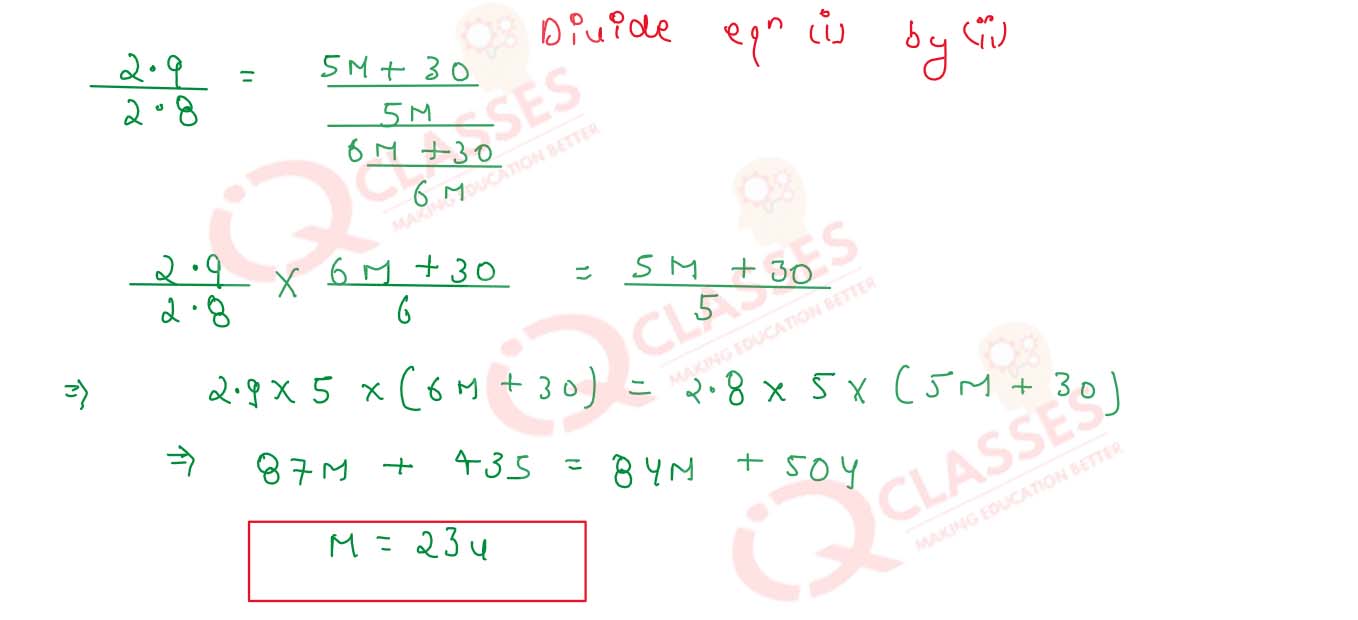 Divide eqn (i) by (ii)
2.9 / 2.8 = ((5M + 30) / 5M) / ((6M + 30) / 6M)
2.9 / 2.8 × (6M + 30) / 6 = (5M + 30) / 5
⇒ 2.9 × 5 × (6M + 30) = 2.8 × 5 × (5M + 30)
⇒ 87M + 435 = 84M + 504
M = 23u
iQ CLASSES
MAKING EDUCATION BETTER
iQ CLASSES
MAKING EDUCATION BETTER
iQ CLASSES
MAKING EDUCATION BETTER